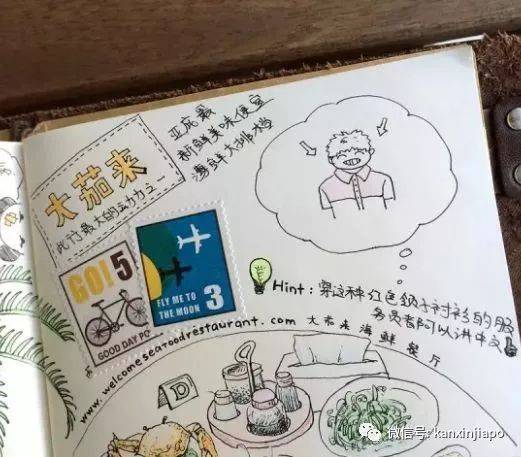 亚庇最
新鲜美味便宜
海鲜大排档
大茄来
此行最大的动力之一
GO! 5
GOOD DAY PO
FLY ME TO
THE MOON 3
Hint: 穿这种红色领子衬衫的服
务员都可以讲中文
www.welcomeseafoodrestaurant.com 大茄来海鲜餐厅
D
微信号: kanxinjiapo